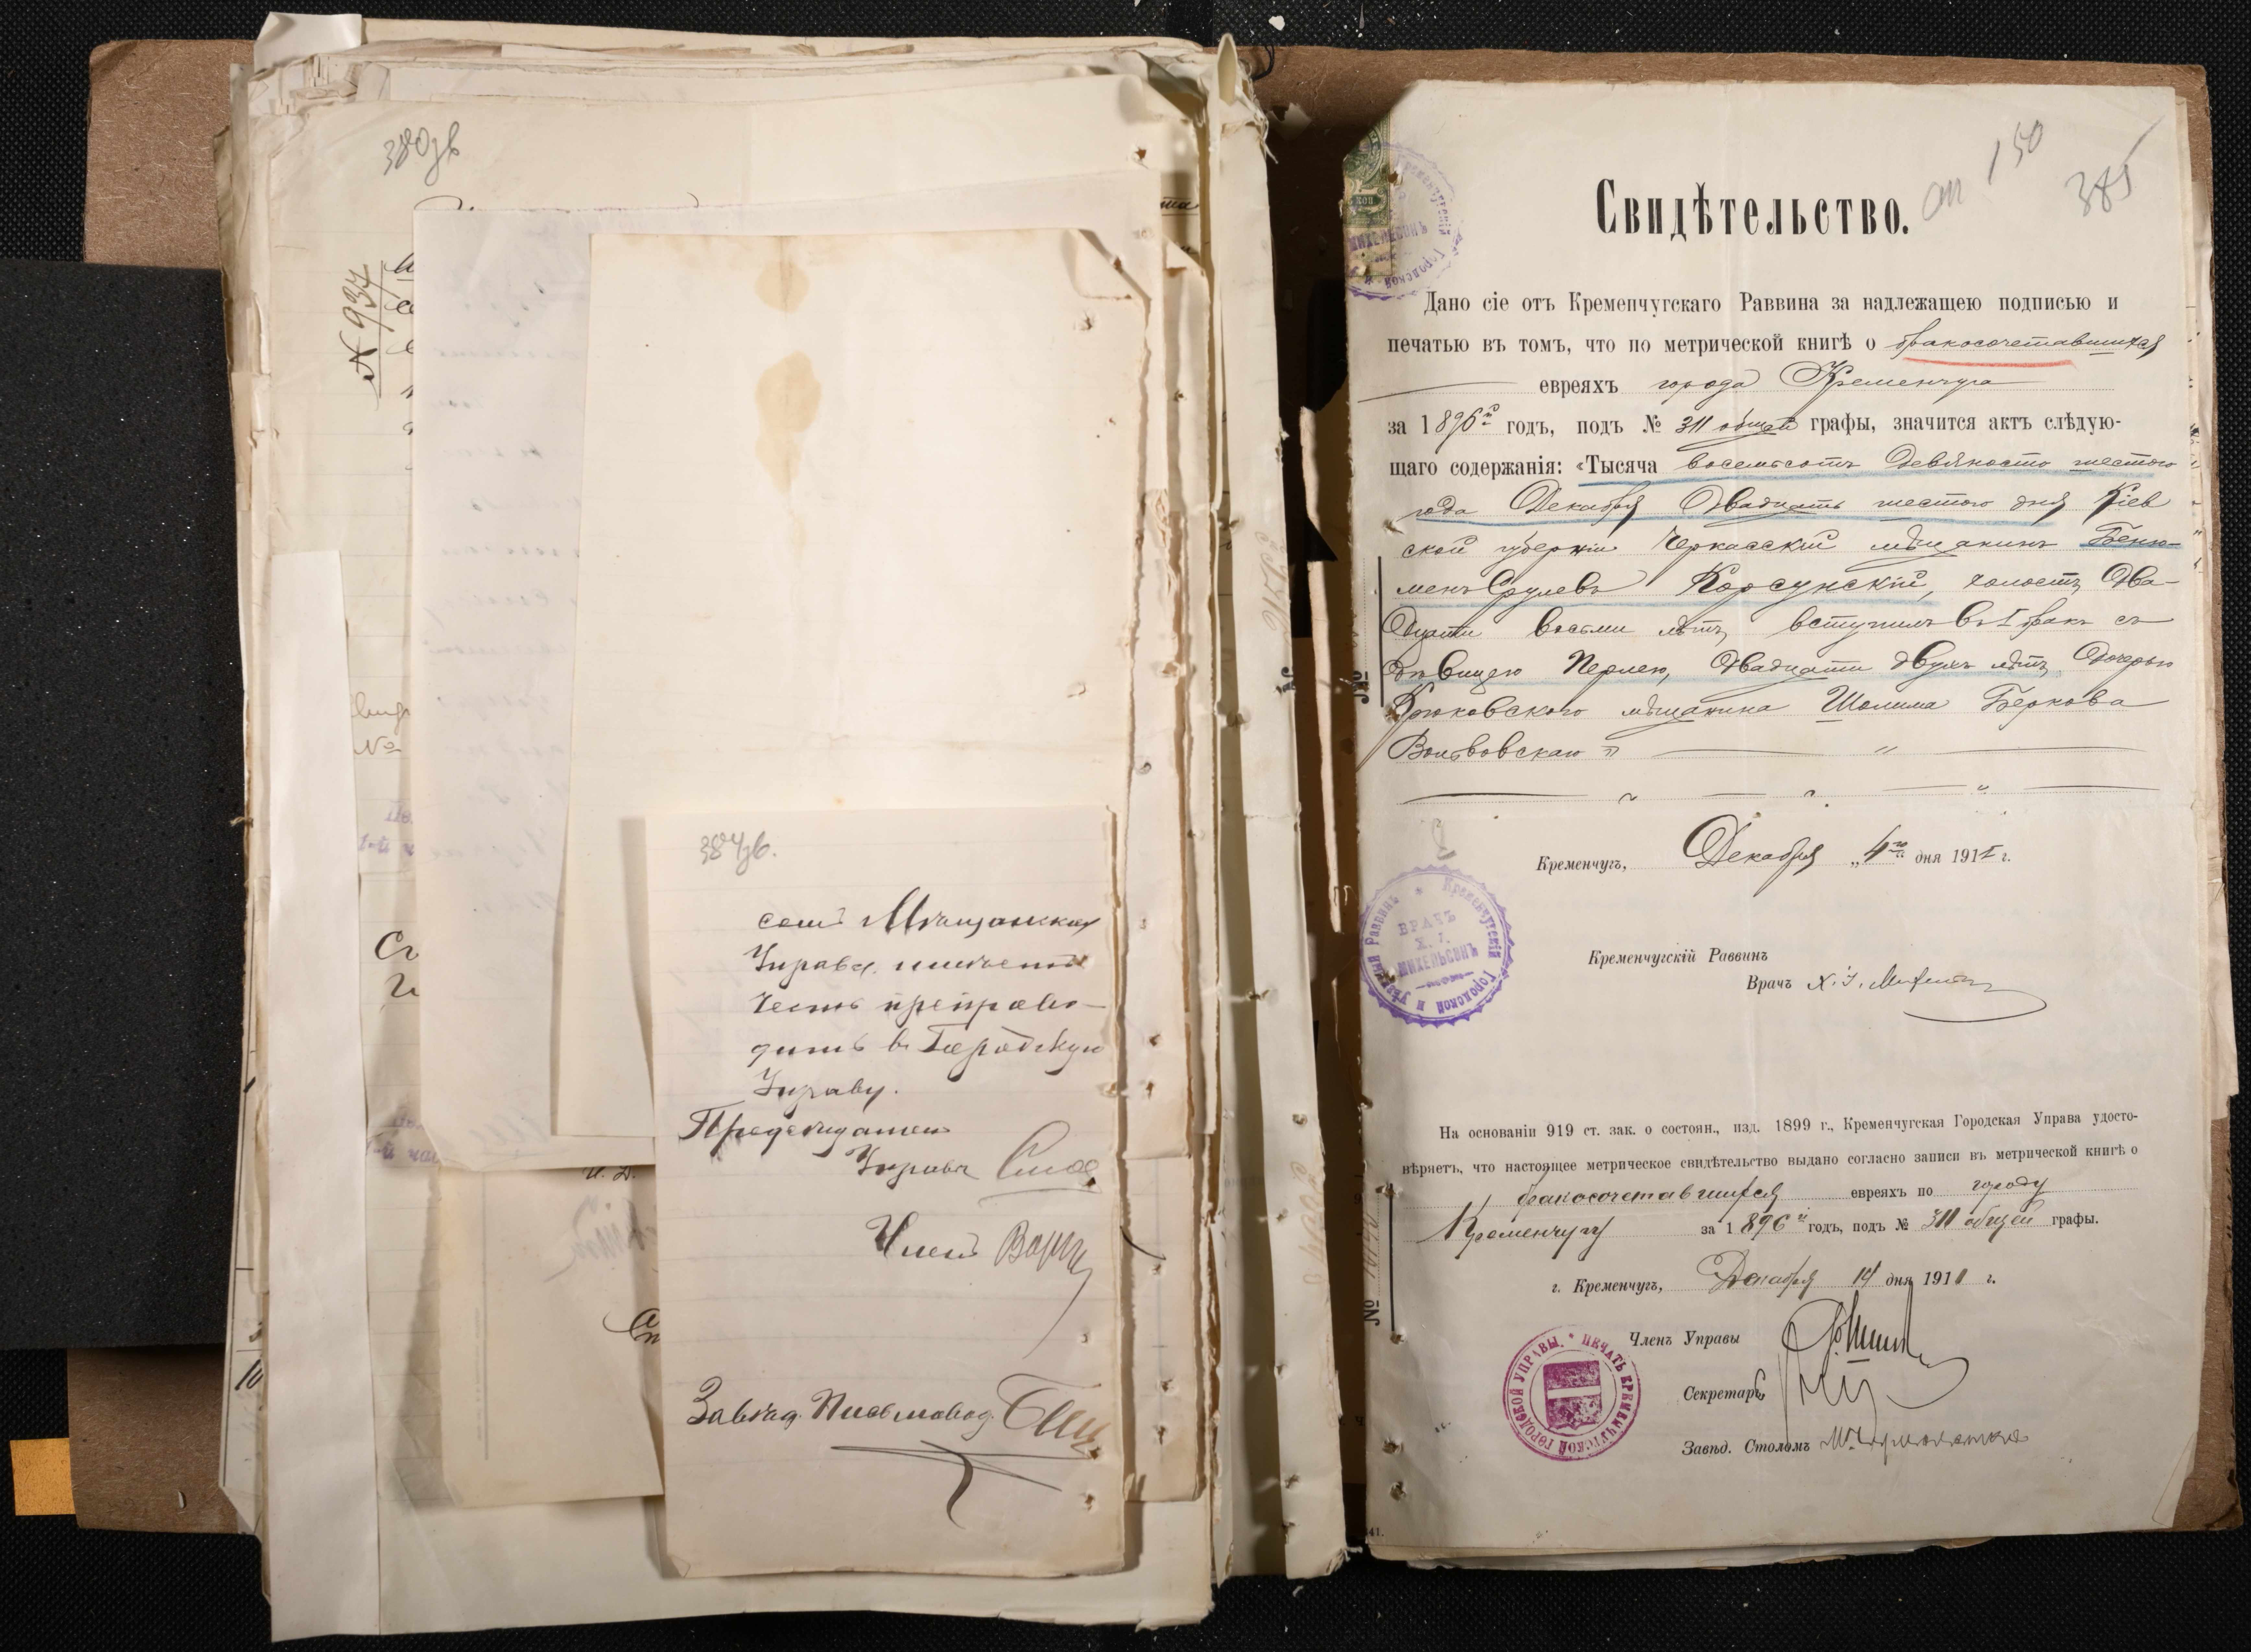 380 зв
№ 937
№
384 зв.
сим Мѣщанская
Управа имѣетъ
честь препрово-
дить въ Городскую
Управу.
Предсѣдатель
Управы
Членъ
Завѣд. Письмовод.
И. Д.
10
385
150
Свидѣтельство.
Дано сіе отъ Кременчугскаго Раввина за надлежащею подписью и
печатью въ томъ, что по метрической книгѣ о бракосочетавшихся
евреяхъ города Кременчуга
за 1896й годъ, подъ № 311 общей графы, значится актъ слѣдую-
щаго содержанія: «Тысяча восемьсотъ девяносто шестого
года Декабря двадцать шестого дня Кіев
ской губерніи Черкасскій мѣщанинъ Беню-
менъ Срулевъ Корсунскій, холостъ, два-
дцати восьми лѣтъ, вступилъ въ I бракъ съ
дѣвицею Перлею, двадцати двухъ лѣтъ, дочерью
Крюковского мѣщанина Шолима Беркова
Вольвовскаго"
Кременчугъ, Декабря „4го" дня 1911 г.
Кременчугскій Городской и Уѣздный Раввинъ
ВРАЧЪ
Х. I.
МИХЕЛЬСОНЪ
Кременчугскій Раввинъ
Врачъ Х. I. Михельсонъ
На основаніи 919 ст. зак. о состоян., изд. 1899 г., Кременчугская Городская Управа удосто-
вѣряетъ, что настоящее метрическое свидѣтельство выдано согласно записи въ метрической книгѣ о
бракосочетавшихся евреяхъ по городу
Кременчугу за 1896й годъ, подъ № 311 общей графы.
г. Кременчугъ, Декабря 14 дня 1911 г.
Членъ Управы
Секретарь
Завѣд. Столомъ
ПЕЧАТЬ КРЕМЕНЧУГСКОЙ ГОРОДСКОЙ УПРАВЫ.
41.